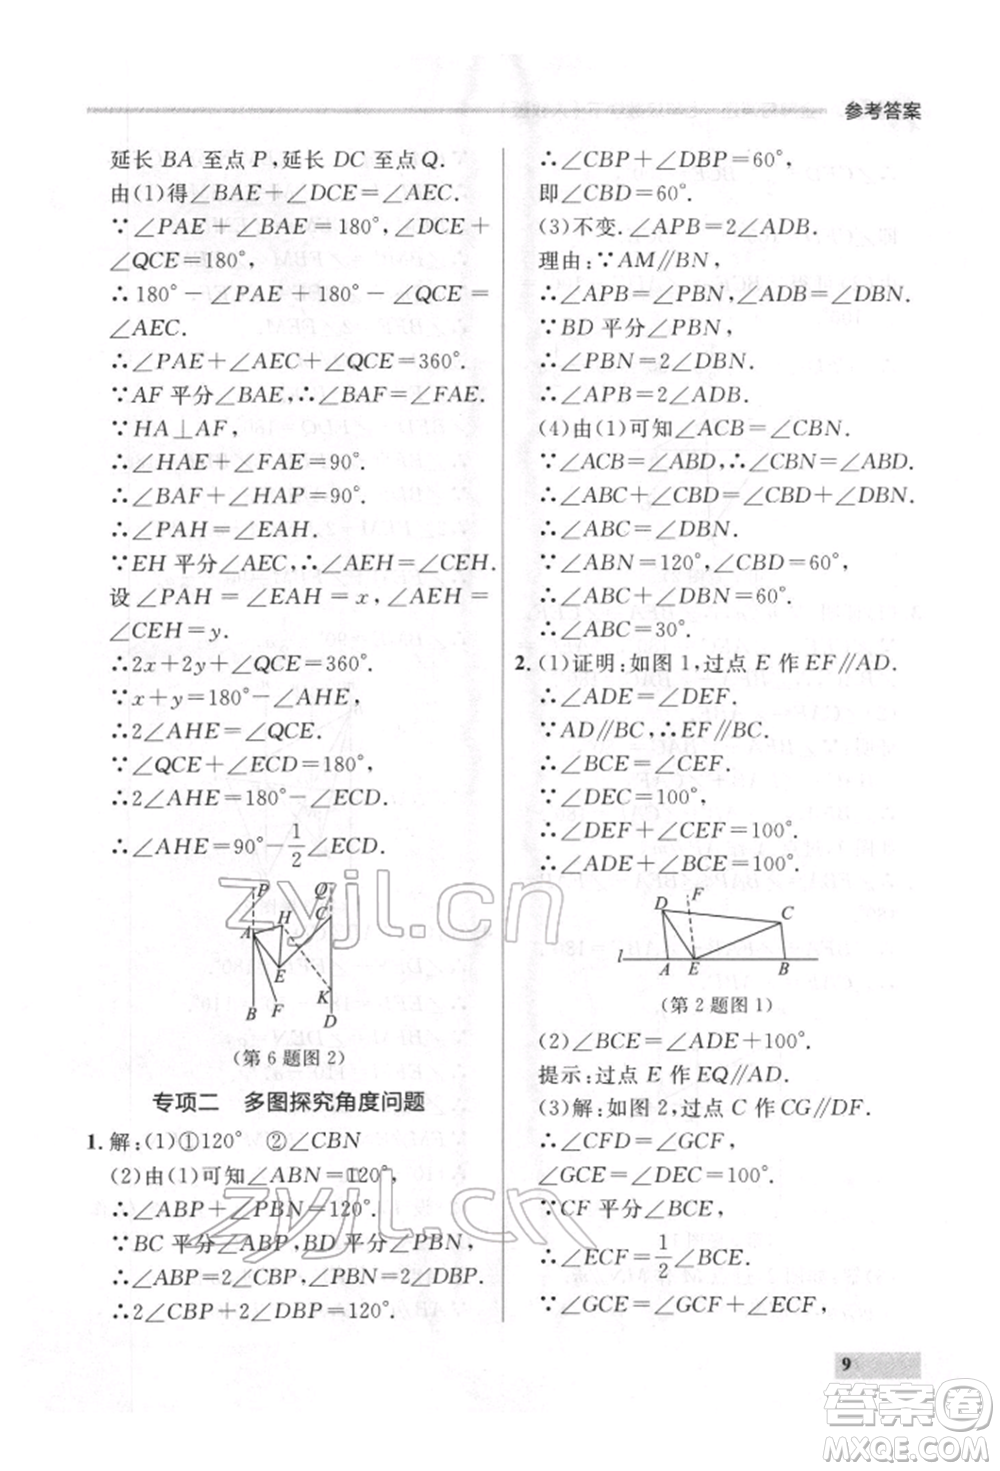 参考答案
延长 BA 至点 P,延长 DC 至点 Q.
由(1)得∠BAE+∠DCE=∠AEC.
∵∠PAE+∠BAE=180°,∠DCE+
∠QCE=180°,
∴180°-∠PAE+180°-∠QCE=
∠AEC.
∴∠PAE+∠AEC+∠QCE=360°.
∵AF 平分∠BAE,∴∠BAF=∠FAE.
∵HA⊥AF,
∴∠HAE+∠FAE=90°.
∴∠BAF+∠HAP=90°.
∴∠PAH=∠EAH.
∵EH 平分∠AEC,∴∠AEH=∠CEH.
设∠PAH=∠EAH=x,∠AEH=
∠CEH=y.
∴2x+2y+∠QCE=360°.
∵x+y=180°-∠AHE,
∴2∠AHE=∠QCE.
∵∠QCE+∠ECD=180°,
∴2∠AHE=180°-∠ECD.
∴∠AHE=90°-1/2∠ECD.
P
Q
H
C
A
E
K
B
F
D
(第 6 题图 2)
专项二 多图探究角度问题
1. 解:(1)①120° ②∠CBN
(2)由(1)可知∠ABN=120°,
∴∠ABP+∠PBN=120°.
∵BC 平分∠ABP,BD 平分∠PBN,
∴∠ABP=2∠CBP,∠PBN=2∠DBP.
∴2∠CBP+2∠DBP=120°.
∴∠CBP+∠DBP=60°,
即∠CBD=60°.
(3)不变.∠APB=2∠ADB.
理由:∵AM∥BN,
∴∠APB=∠PBN,∠ADB=∠DBN.
∵BD 平分∠PBN,
∴∠PBN=2∠DBN.
∴∠APB=2∠ADB.
(4)由(1)可知∠ACB=∠CBN.
∵∠ACB=∠ABD,∴∠CBN=∠ABD.
∴∠ABC+∠CBD=∠CBD+∠DBN.
∴∠ABC=∠DBN.
∵∠ABN=120°,∠CBD=60°,
∴∠ABC+∠DBN=60°.
∴∠ABC=30°.
2. (1)证明:如图 1,过点 E 作 EF∥AD.
∴∠ADE=∠DEF.
∵AD∥BC,∴EF∥BC.
∴∠BCE=∠CEF.
∵∠DEC=100°,
∴∠DEF+∠CEF=100°.
∴∠ADE+∠BCE=100°.
F
D
C
l
A
E
B
(第 2 题图 1)
(2)∠BCE=∠ADE+100°.
提示:过点 E 作 EQ∥AD.
(3)解:如图 2,过点 C 作 CG∥DF.
∴∠CFD=∠GCF,
∠GCE=∠DEC=100°.
∵CF 平分∠BCE,
∴∠ECF=1/2∠BCE.
∵∠GCE=∠GCF+∠ECF,
9
zyjl.cn
zyjl.cn
答案圈
MXQE.COM